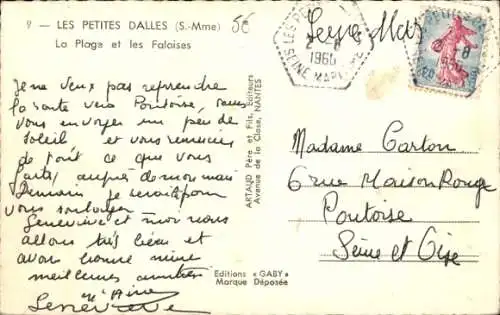 9 - LES PETITES DALLES (S.-Mme)
La Plage et les Falaises
Je ne veux pas reprendre
la route vers Pontoise, sans
vous envoyer un peu de
soleil et vous remercier
de tout ce que vous
faites auprès de mon mari
Demain je serai pour
vous soulager
Geneviève et moi nous
allons très bien et
avons bonne mine
meilleures
Geneviève
ARTAUD Père et Fils, Editeurs
Avenue de la Close, NANTES
Editions « GABY »
Marque Déposée
SEINE MARITIME
2 - 8
1960
Madame Carton
6 rue Maison Rouge
Pontoise
Seine et Oise